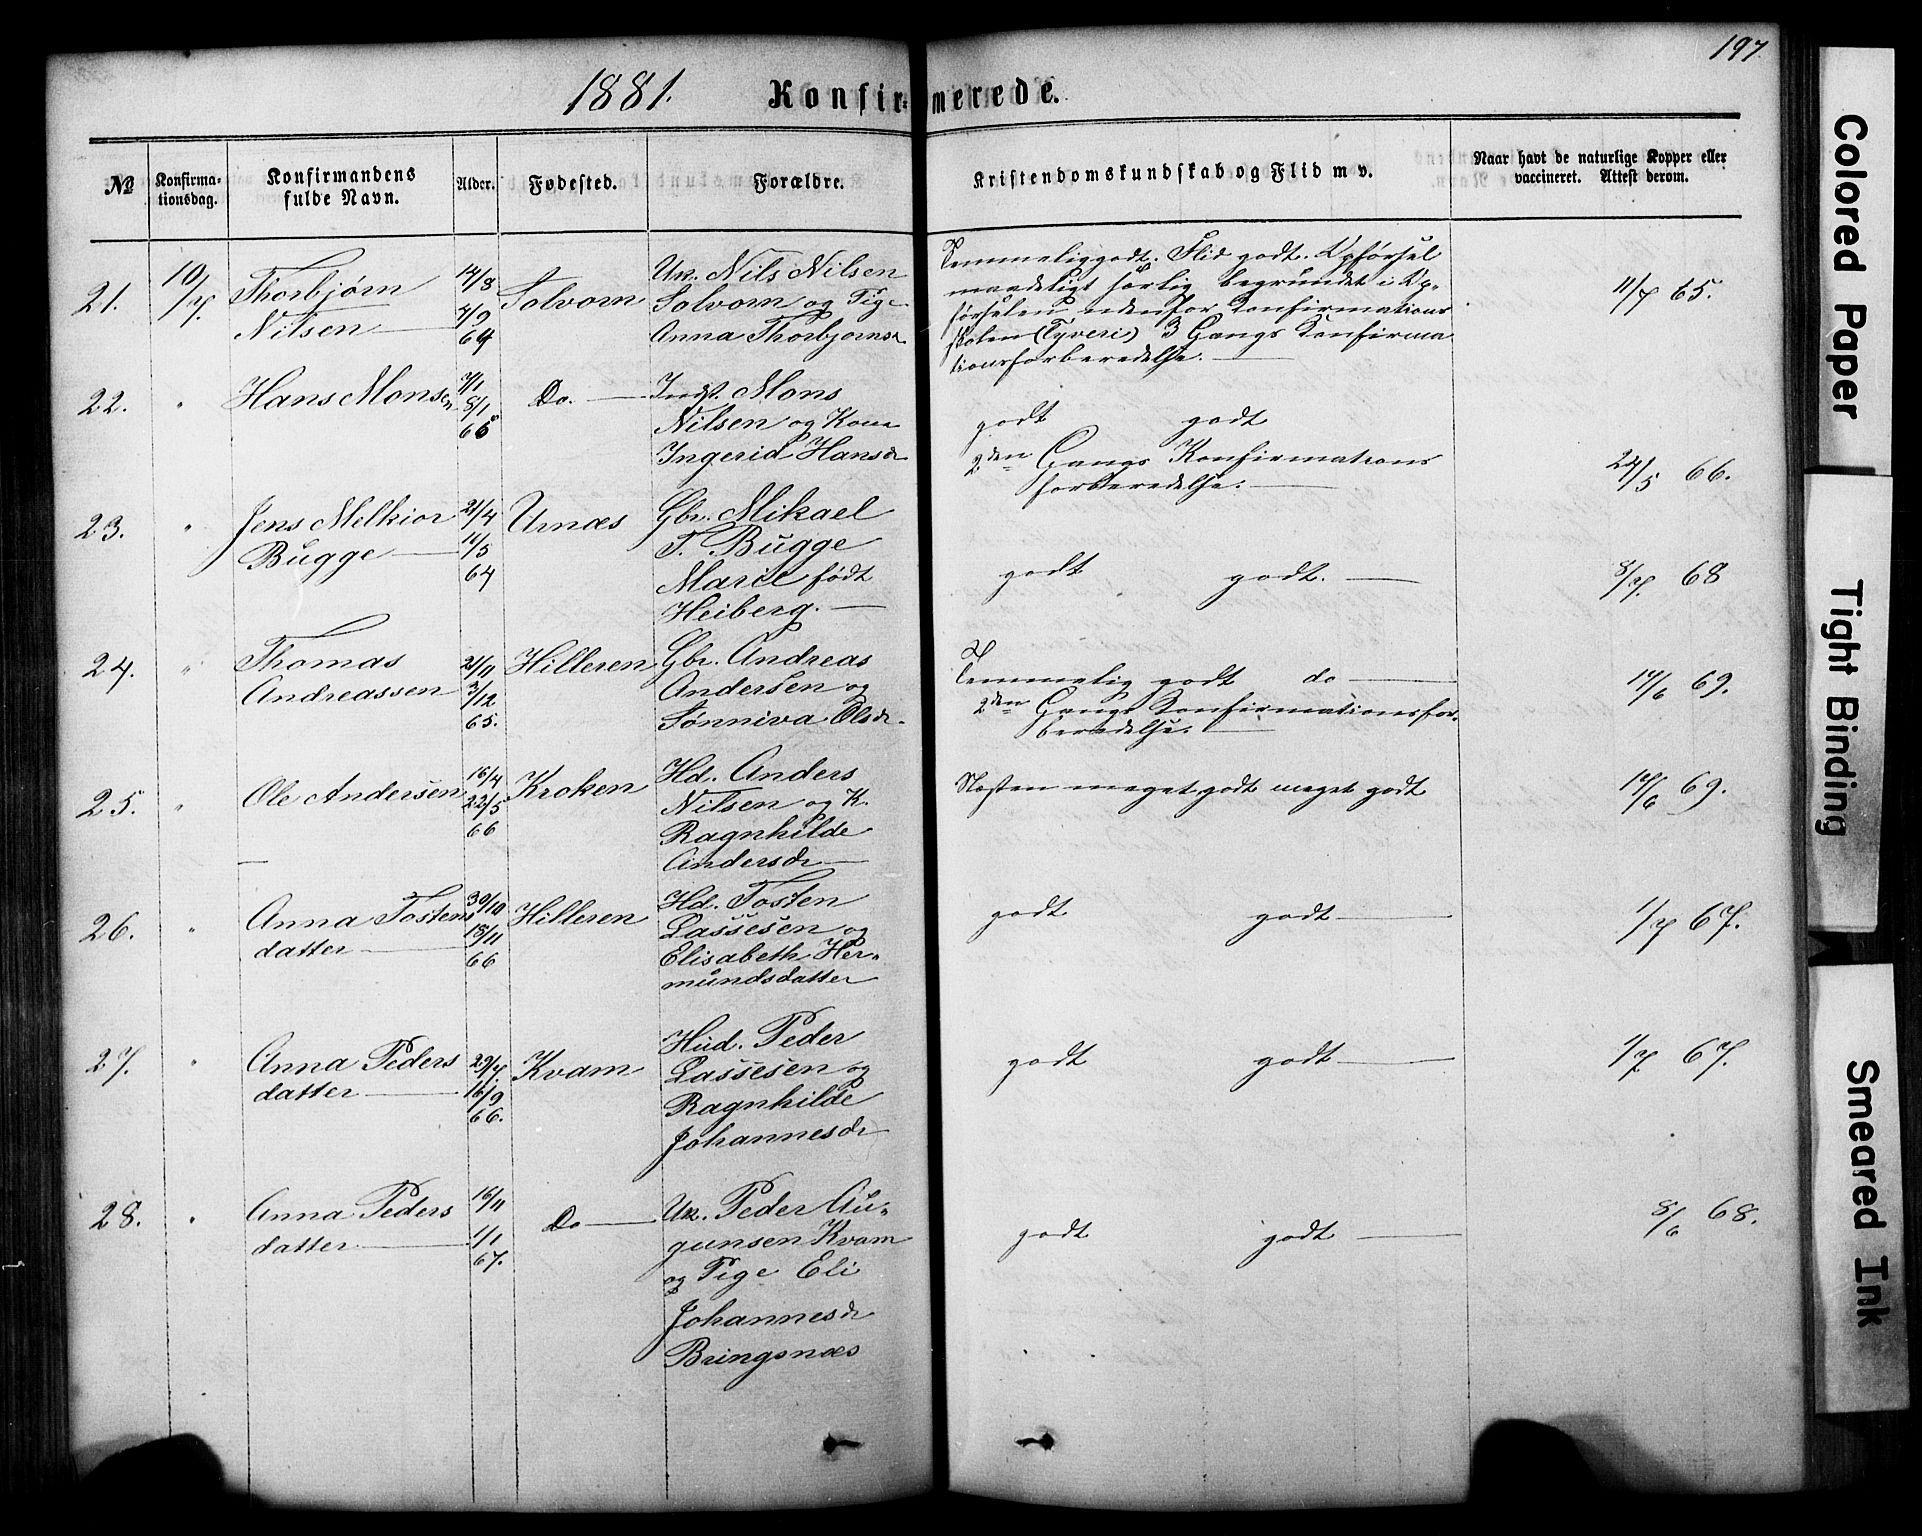 197.
1881. Konfirmerede.
No Konfirmationsdag. Konfirmandens fulde Navn. Alder. Fødested. Forældre. Kristendomskundskab og Flid m v. Naar havt de naturlige Kopper eller vaccineret. Attest derom.
21. 10/7. Thorbjørn 14/8 Solvorn Uk. Nils Nilsen Temmelig godt. Flid godt. Opførsel 11/7 65.
Nilsen 64 Solvorn og Pige maadeligt særlig begrundet i Op-
Anna Thorbjørnsd. førselen udenfor Konfirmations
skolen (Tyveri) 3 Gangs Konfirma
tionsforberedelse.
22. " Hans Monsen 7/1 Do. Indst. Mons godt godt 24/5 66.
8/1 Nilsen og Kone 2den Gangs Konfirmations
Ingerid Hansdr forberedelse.
23. " Jens Melkior 21/4 Urnæs Gbr. Mikael godt godt. 8/7. 68
Bugge 11/5 T. Bugge
64 Marie født
Heiberg.
24. " Thomas 21/11 Hilleren Gbr. Andreas Temmelig godt do 17/6 69.
Andreassen 3/12 Andersen og 2den Gangs Konfirmationsfor-
65. Sønniva Olsdr. beredelse.
25. " Ole Andersen 16/4 Kroken Hd. Anders Næsten meget godt meget godt 17/6 69.
22/5 Nilsen og K.
66 Ragnhilde
Andersdr
26. " Anna Tostens 30/10 Hilleren Hd. Tosten godt godt 1/7 67.
datter 18/11 Lassesen og
66 Elisabeth Her-
mundsdatter
27. " Anna Peders 29/7. Kvam Hud. Peder godt godt 1/7 67.
datter 16/9 Lassesen og
66. Ragnhilde
Johannesdr
28. " Anna Peders 16/11 Do Uk. Peder Au- godt godt 8/6 68.
datter 1/1 gunsen Kvam
67. og Pige Eli
Johannesdr
Bringsnæs
Colored Paper
Tight Binding
Smeared Ink